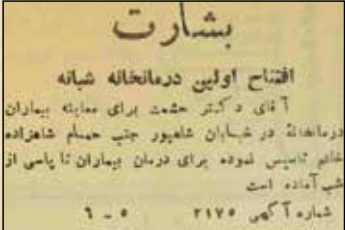 بشارت
افتتاح اولین درمانخانه شبانه
آقای دکتر حشمت برای معاینه بیماران
درمانخانهٔ در خیابان شاهپور جنب حمام شاهزاده
خانم تاسیس نموده برای درمان بیماران تا پاسی از
شب آماده است
شماره آگهی ۲۱۷۵ ۵ - ۶